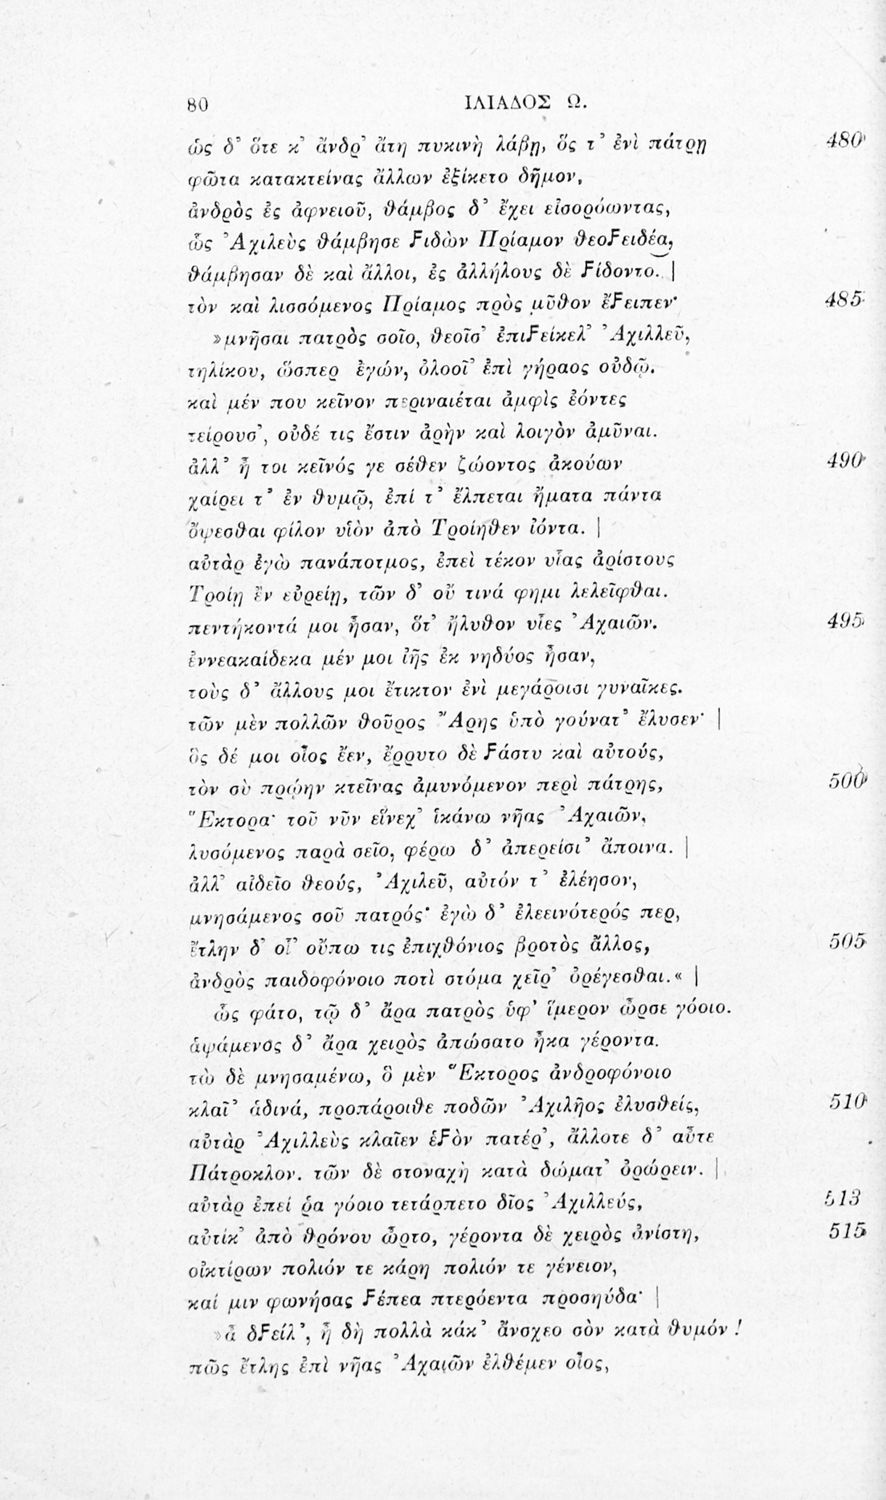 80 ΙΛΙΑΔΟΣ Ω.
ὡς δ’ ὅτε κ’ ἄνδρ’ ἄτη πυκινὴ λάβῃ, ὅς τ’ ἐνὶ πάτρῃ 480
φῶτα κατακτείνας ἄλλων ἐξίκετο δῆμον,
ἀνδρὸς ἐς ἀφνειοῦ, θάμβος δ’ ἔχει εἰσορόωντας,
ὣς Ἀχιλεὺς θάμβησε ϝιδὼν Πρίαμον θεοϝειδέα,
θάμβησαν δὲ καὶ ἄλλοι, ἐς ἀλλήλους δὲ ϝίδοντο. |
τὸν καὶ λισσόμενος Πρίαμος πρὸς μῦθον ἔϝειπεν· 485
»μνῆσαι πατρὸς σοῖο, θεοῖσ’ ἐπιϝείκελ’ Ἀχιλλεῦ,
τηλίκου, ὥσπερ ἐγών, ὀλοοῖ’ ἐπὶ γήραος οὐδῷ.
καὶ μέν που κεῖνον περιναιέται ἀμφὶς ἐόντες
τείρουσ’, οὐδέ τις ἔστιν ἀρὴν καὶ λοιγὸν ἀμῦναι.
ἀλλ’ ἦ τοι κεῖνός γε σέθεν ζώοντος ἀκούων 490
χαίρει τ’ ἐν θυμῷ, ἐπί τ’ ἔλπεται ἤματα πάντα
ὄψεσθαι φίλον υἱὸν ἀπὸ Τροίηθεν ἰόντα. |
αὐτὰρ ἐγὼ πανάποτμος, ἐπεὶ τέκον υἷας ἀρίστους
Τροίῃ ἐν εὐρείῃ, τῶν δ’ οὔ τινά φημι λελεῖφθαι.
πεντήκοντά μοι ἦσαν, ὅτ’ ἤλυθον υἷες Ἀχαιῶν. 495
ἐννεακαίδεκα μέν μοι ἰῆς ἐκ νηδύος ἦσαν,
τοὺς δ’ ἄλλους μοι ἔτικτον ἐνὶ μεγάροισι γυναῖκες.
τῶν μὲν πολλῶν θοῦρος Ἄρης ὑπὸ γούνατ’ ἔλυσεν· |
ὃς δέ μοι οἶος ἔεν, ἔρρυτο δὲ ϝάστυ καὶ αὐτούς,
τὸν σὺ πρώην κτεῖνας ἀμυνόμενον περὶ πάτρης, 500
Ἕκτορα· τοῦ νῦν εἵνεχ’ ἱκάνω νῆας Ἀχαιῶν,
λυσόμενος παρὰ σεῖο, φέρω δ’ ἀπερείσι’ ἄποινα. |
ἀλλ’ αἰδεῖο θεούς, Ἀχιλεῦ, αὐτόν τ’ ἐλέησον,
μνησάμενος σοῦ πατρός· ἐγὼ δ’ ἐλεεινότερός περ,
ἔτλην δ’ οἷ’ οὔπω τις ἐπιχθόνιος βροτὸς ἄλλος, 505
ἀνδρὸς παιδοφόνοιο ποτὶ στόμα χεῖρ’ ὀρέγεσθαι.« |
ὣς φάτο, τῷ δ’ ἄρα πατρὸς ὑφ’ ἵμερον ὦρσε γόοιο.
ἁψάμενος δ’ ἄρα χειρὸς ἀπώσατο ἦκα γέροντα.
τὼ δὲ μνησαμένω, ὃ μὲν Ἕκτορος ἀνδροφόνοιο
κλαῖ’ ἁδινά, προπάροιθε ποδῶν Ἀχιλῆος ἐλυσθείς, 510
αὐτὰρ Ἀχιλλεὺς κλαῖεν ἑϝὸν πατέρ’, ἄλλοτε δ’ αὖτε
Πάτροκλον. τῶν δὲ στοναχὴ κατὰ δώματ’ ὀρώρειν. |
αὐτὰρ ἐπεί ῥα γόοιο τετάρπετο δῖος Ἀχιλλεύς, 513
αὐτίκ’ ἀπὸ θρόνου ὦρτο, γέροντα δὲ χειρὸς ἀνίστη, 515
οἰκτίρων πολιόν τε κάρη πολιόν τε γένειον,
καί μιν φωνήσας ϝέπεα πτερόεντα προσηύδα· |
»ἆ δϝείλ’, ἦ δὴ πολλὰ κάκ’ ἄνσχεο σὸν κατὰ θυμόν!
πῶς ἔτλης ἐπὶ νῆας Ἀχαιῶν ἐλθέμεν οἶος,